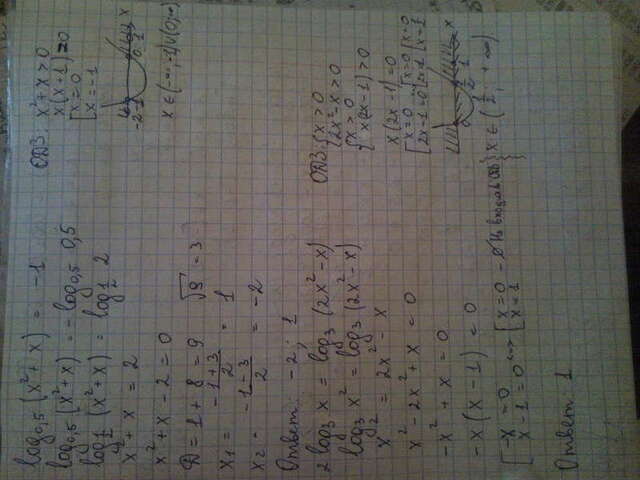 log₀,₅ (x² + x) = -1
log₀,₅ (x² + x) = -log₀,₅ 0,5
log_{1/2} (x² + x) = log_{1/2} 2
x² + x = 2
x² + x - 2 = 0
D = 1 + 8 = 9 √9 = 3
x₁ = (-1+3)/2 = 1
x₂ = (-1-3)/2 = -2
Ответ: -2; 1
ОДЗ x² + x > 0
x(x+1) = 0
[x = 0
[x = -1
-2 -1 0 1 x
x ∈ (-∞; -1) ∪ (0; ∞)
2 log₃ x = log₃ (2x² - x)
log₃ x² = log₃ (2x² - x)
x² = 2x² - x
x² - 2x² + x = 0
-x² + x = 0
-x(x - 1) = 0
[-x = 0
[x - 1 = 0 ⟺ [x = 0 - не входит в ОДЗ
[x = 1
Ответ 1
ОДЗ: {x > 0
{2x² - x > 0
{x > 0
{x(2x - 1) > 0
x(2x - 1) = 0
[x = 0 [x = 0 [x = 0
[2x - 1 = 0 [2x = 1
0 1/2 1 x
x ∈ (1/2; +∞)